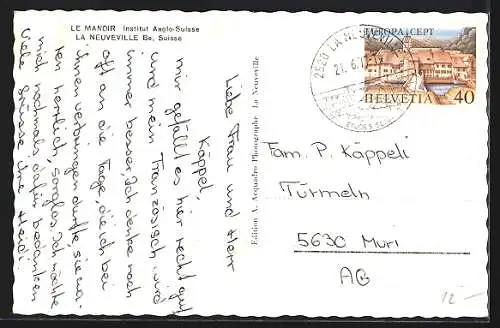 LE MANDOIR Institut Anglo-Suisse
LA NEUVEVILLE Be, Suisse
Liebe Frau und Herr
Käppel,
mir gefällt es hier recht gut
und mein Französisch wird
immer besser. Ich denke noch
oft an die Tage, die ich bei
ihnen verbringen durfte, sie wa-
ren herrlich, sorglos. Ich möchte
mich nochmals dafür bedanken
Liebe Grüsse ihre Heidi
Edition A. Acquadro Photographe La Neuveville
2520 LA NEUVEVILLE
21.6.77
EUROPA CEPT
HELVETIA 40
Fam. P. Käppeli
Türmeln
5630 Muri
AG
12.-